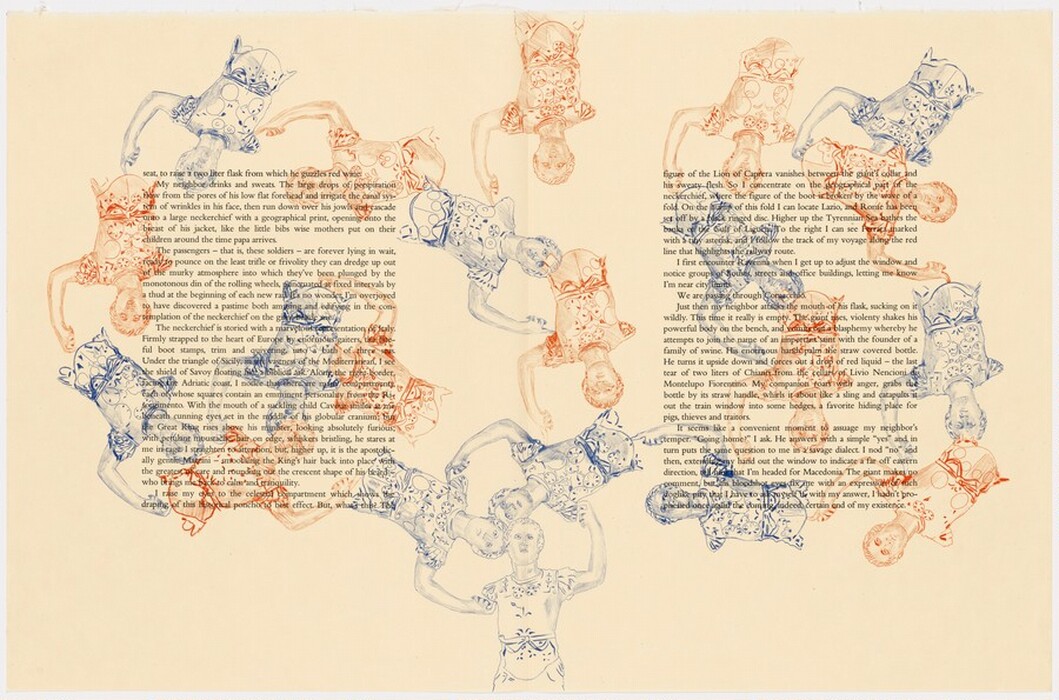 seat, to raise a two liter flask from which he guzzles red wine.
My neighbor drinks and sweats. The large drops of perspiration
flow from the pores of his low flat forehead and irrigate the canal sys-
tem of wrinkles in his face, then run down over his jowls and
onto a large neckerchief with a geographical print, opening onto the
breast of his jacket, like the little bibs wise mothers put on their
children around the time papa arrives.
The passengers – that is, these soldiers – are forever lying in wait,
ready to pounce on the least trifle or frivolity they can dredge up out
of the murky atmosphere into which they've been plunged by the
monotonous din of the rolling wheels, punctuated at fixed intervals by
a thud at the beginning of each new rail. It's no wonder I'm overjoyed
to have discovered a pastime both amusing and edifying in the con-
templation of the neckerchief on the
The neckerchief is storied with a marvelous presentation of Italy.
Firmly strapped to the heart of Europe by enormous gaiters, the
ful boot stamps, trim and into a bath of three
Under the triangle of Sicily, in the of the Mediterranean, I see
the shield of Savoy floating like a biblical ark. Along the right border,
facing the Adriatic coast, I notice that there are compartments,
each of whose squares contain an eminent personality from the Ri-
sorgimento. With the mouth of a suckling child Cavour smiles at me
beneath cunning eyes set in the middle of his globular cranium; but
the Great King rises above his minister, looking absolutely furious
with perfusing moustache, hair on edge, whiskers bristling, he stares at
me in case I straighten to attention, but, higher up, it is the apostolic-
ally gentle Mazzini – smoothing the King's hair back into place with
the greatest of ease and rounding out the crescent shape of his beard,
who brings me back to calm and tranquility.
I raise my eyes to the celestial compartment which shows the
draping of this liturgical poncho to best effect. But, what's this? The
figure of the Lion of Caprera vanishes between the giant's collar and
his sweaty flesh. So I concentrate on the geographical part of the
neckerchief, where the figure of the boot is broken by the wave of a
fold. On the top of this fold I can locate Lazio, and Rome has been
set off by a black ringed disc. Higher up the Tyrennian Sea bathes the
backs of the Gulf of Liguria. To the right I can see Ferrara marked
with a tiny asterisk, and I follow the track of my voyage along the red
line that highlights the railway route.
I first encounter Ravenna when I get up to adjust the window and
notice groups of houses, streets and office buildings, letting me know
I'm near city limits.
We are passing through
Just then my neighbor attacks the mouth of his flask, sucking on it
wildly. This time it really is empty. The giant rises, violently shakes his
powerful body on the bench, and vomits a blasphemy whereby he
attempts to join the name of an important with the founder of a
family of swine. His enormous hands palm the straw covered bottle.
He turns it upside down and forces out a drop of red liquid – the last
tear of two liters of Chianti from the cellars of Livio Nencioni di
Montelupo Fiorentino. My companion roars with anger, grabs the
bottle by its straw handle, whirls it about like a sling and catapults it
out the train window into some hedges, a favorite hiding place for
pigs, thieves and traitors.
It seems like a convenient moment to assuage my neighbor's
temper. "Going home?" I ask. He answers with a simple "yes" and in
turn puts the same question to me in a savage dialect. I nod "no" and
then, extending my hand out the window to indicate a far off eastern
direction, tell him that I'm headed for Macedonia. The giant makes no
comment, but his bloodshot eyes fix me with an expression of such
doglike pity that I have to ask myself if, with my answer, I hadn't pro-
phesied once again the coming, indeed, certain end of my existence.